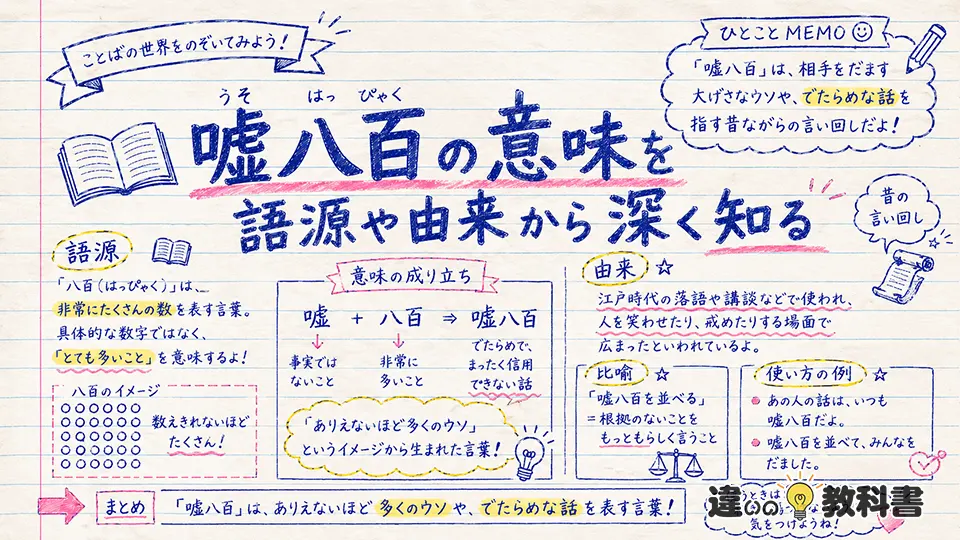 ことばの世界をのぞいてみよう！
ひとことMEMO
「嘘八百」は、相手をだます
大げさなウソや、でたらめな話を
指す昔ながらの言い回しだよ！
うそ はっ ぴゃく
嘘八百の意味を
語源や由来から深く知る
昔の
言い回し
語源
「八百（はっぴゃく）」は、
非常にたくさんの数を表す言葉。
具体的な数字ではなく、
「とても多いこと」を意味するよ！
八百のイメージ
数えきれないほど
たくさん！
意味の成り立ち
嘘 + 八百 ⇒ 嘘八百
事実では
ないこと
非常に
多いこと
でたらめで、
まったく信用
できない話
「ありえないほど多くのウソ」
というイメージから生まれた言葉！
由来
江戸時代の落語や講談などで使われ、
人を笑わせたり、戒めたりする場面で
広まったといわれているよ。
比喩
「嘘八百を並べる」
＝根拠のないことを
もっともらしく言うこと
使い方の例
あの人の話は、いつも
嘘八百だよ。
嘘八百を並べて、みんなを
だました。
まとめ
「嘘八百」は、ありえないほど多くのウソや、でたらめな話を表す言葉！
うときは
気をつけようね！
違いの教科書